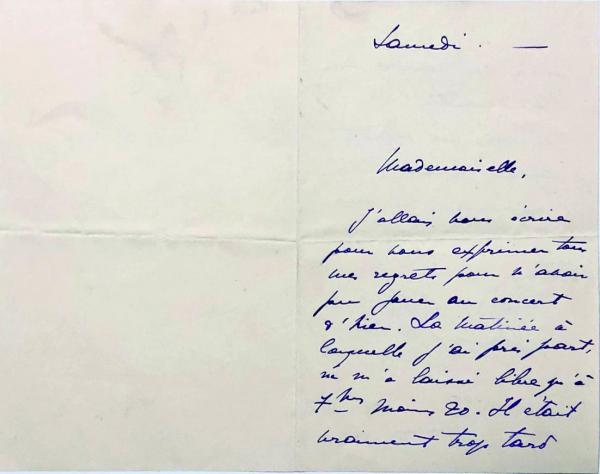 Samedi. —
Mademoiselle,
J'allais vous écrire
pour vous exprimer tous
mes regrets pour n'avoir
pu jouer au concert
d'hier. La matinée à
laquelle j'ai pris part,
m'a laissé libre qu'à
7 hrs moins 20. Il était
vraiment trop tard